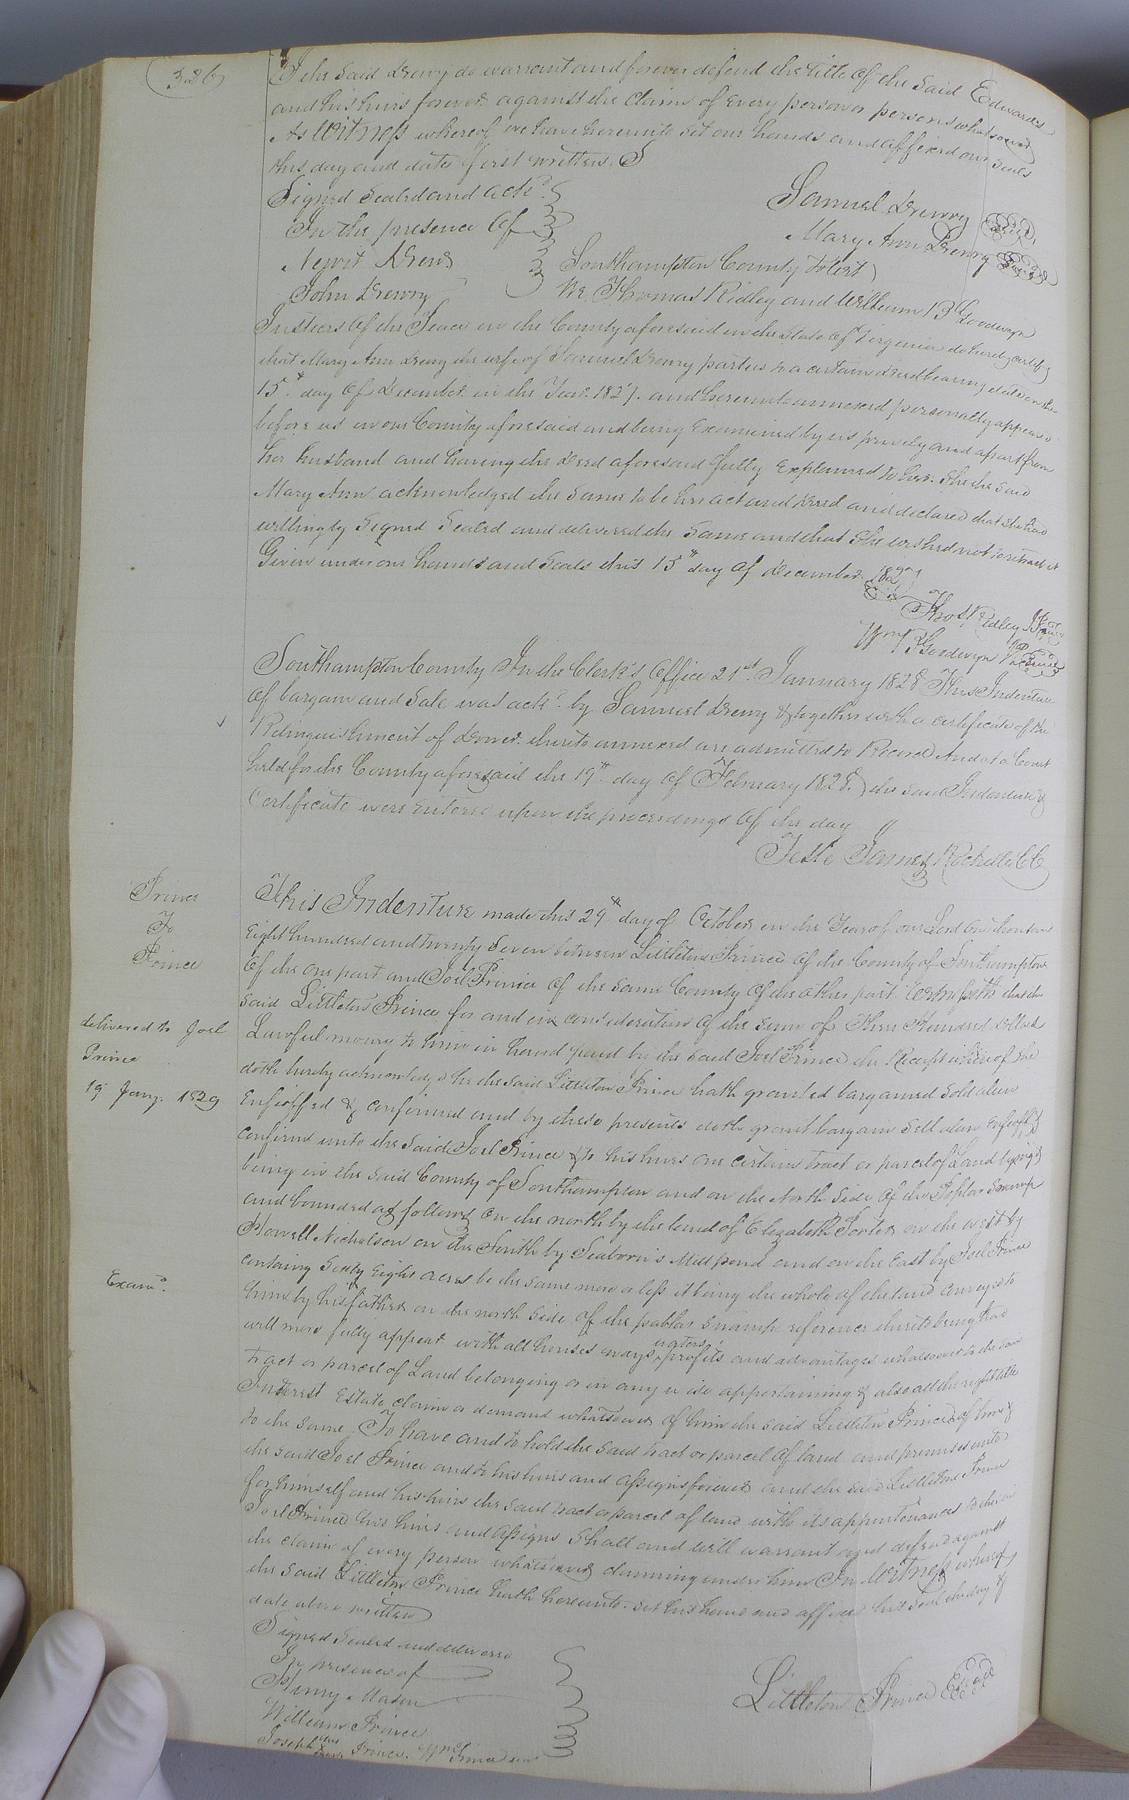 326
I the said Drewry do warrant and forever defend the title of the said Edwards
and his heirs forever against the claim of every person or persons whatsoever
As Witness whereof we have hereunto set our hands and affixed our seals
this day and date first written
Signed Sealed and ackd.
In the presence of
Drew
John Drewry
Samuel Drewry Seal
Mary Ann Drewry Seal
Southampton County to wit
We Thomas Ridley and William B Goodwyn
Justices of the Peace in the County aforesaid in the State of Virginia do hereby certify
that Mary Ann Drewry the wife of Samuel Drewry parties to a certain deed bearing date on the
15th day of December in the Year 1827. and hereunto annexed personally appeared
before us in our County aforesaid and being Examined by us privily and apart from
her husband and having the deed aforesaid fully Explained to her. She the said
Mary Ann acknowledged the same to be her act and deed and declared that she had
willingly Signed Sealed and delivered the same and that She wished not to retract it
Given under our hands and Seals this 15th day of December 1827
Thos. Ridley
Wm B Goodwyn
Southampton County In the Clerk's Office 21st January 1828 This Indenture
of bargain and Sale was ackd. by Samuel Drewry & together with a certificate of the
Relinquishment of Dower thereto annexed are admitted to Record And at a Court
held for the County aforesaid the 19th day of February 1828. the said Indenture &
Certificate were entered upon the proceedings of the day
Teste James Rochelle CC
Prince
To
Prince
delivered to Joel
Prince
19 Jany. 1829
Examd.
This Indenture made this 29th day of October in the Year of our Lord one thousand
Eight hundred and twenty Seven between Littleton Prince of the County of Southampton
of the one part and Joel Prince of the same County of the other part. Witnesseth that the
said Littleton Prince for and in consideration of the sum of Three Hundred dollars
Lawful money to him in hand paid by the said Joel Prince the Receipt whereof he
doth hereby acknowledge he the said Littleton Prince hath granted bargained Sold alien
Enfeoffed & confirmed and by these presents doth grant bargain Sell alien enfeoff &
confirm unto the said Joel Prince & to his heirs one certain tract or parcel of Land lying &
being in the said County of Southampton and on the North Side of the Poplar Swamp
and bounded as follows on the north by the land of Elizabeth Porter on the west by
Howell Nicholson on the South by Seaborn's Mill pond and on the East by Joel Prince
containg Sixty Eight acres be the same more or less it being the whole of the land conveyed to
him by his father on the north side of the poblar swamp reference thereto being had
will more fully appear with all houses ways waters profits and advantages whatsoever to the said
tract or parcel of Land belonging or in any wise appertaining & also all the right title
Interest Estate claim or demand whatsoever of him the said Littleton Prince of him &
to the same, To have and to hold the said tract or parcel of land and premises unto
the said Joel Prince and to his heirs and assigns forever and the said Littleton Prince
for himself and his heirs the said tract or parcel of land with its appurtenances to the said
Joel Prince his heirs and assigns shall and will warrant and defend against
the claim of every person whatsoever claiming under him In Witness whereof
the said Littleton Prince hath hereunto set his hand and affixed his seal the day &
date above written
Signed Sealed and delivered
In presence of
Henry Mason
William Prince
Joseph Prince.
Littleton Prince Seal